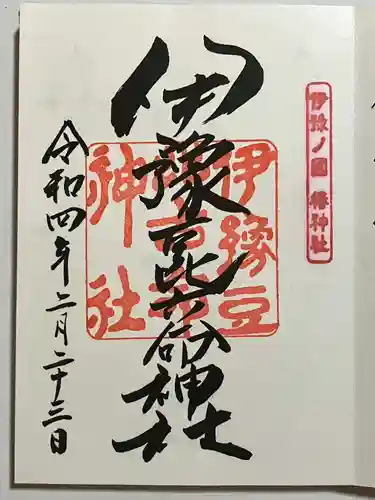 伊豫ノ國 椿神社
伊豫豆比古命神社
伊豫豆
比古命
神社
令和四年二月二十三日